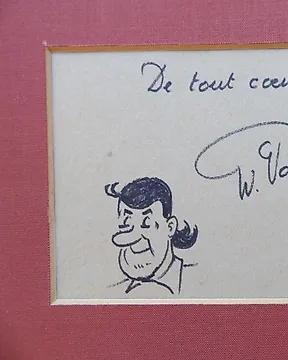 De tout cœu
W. Va